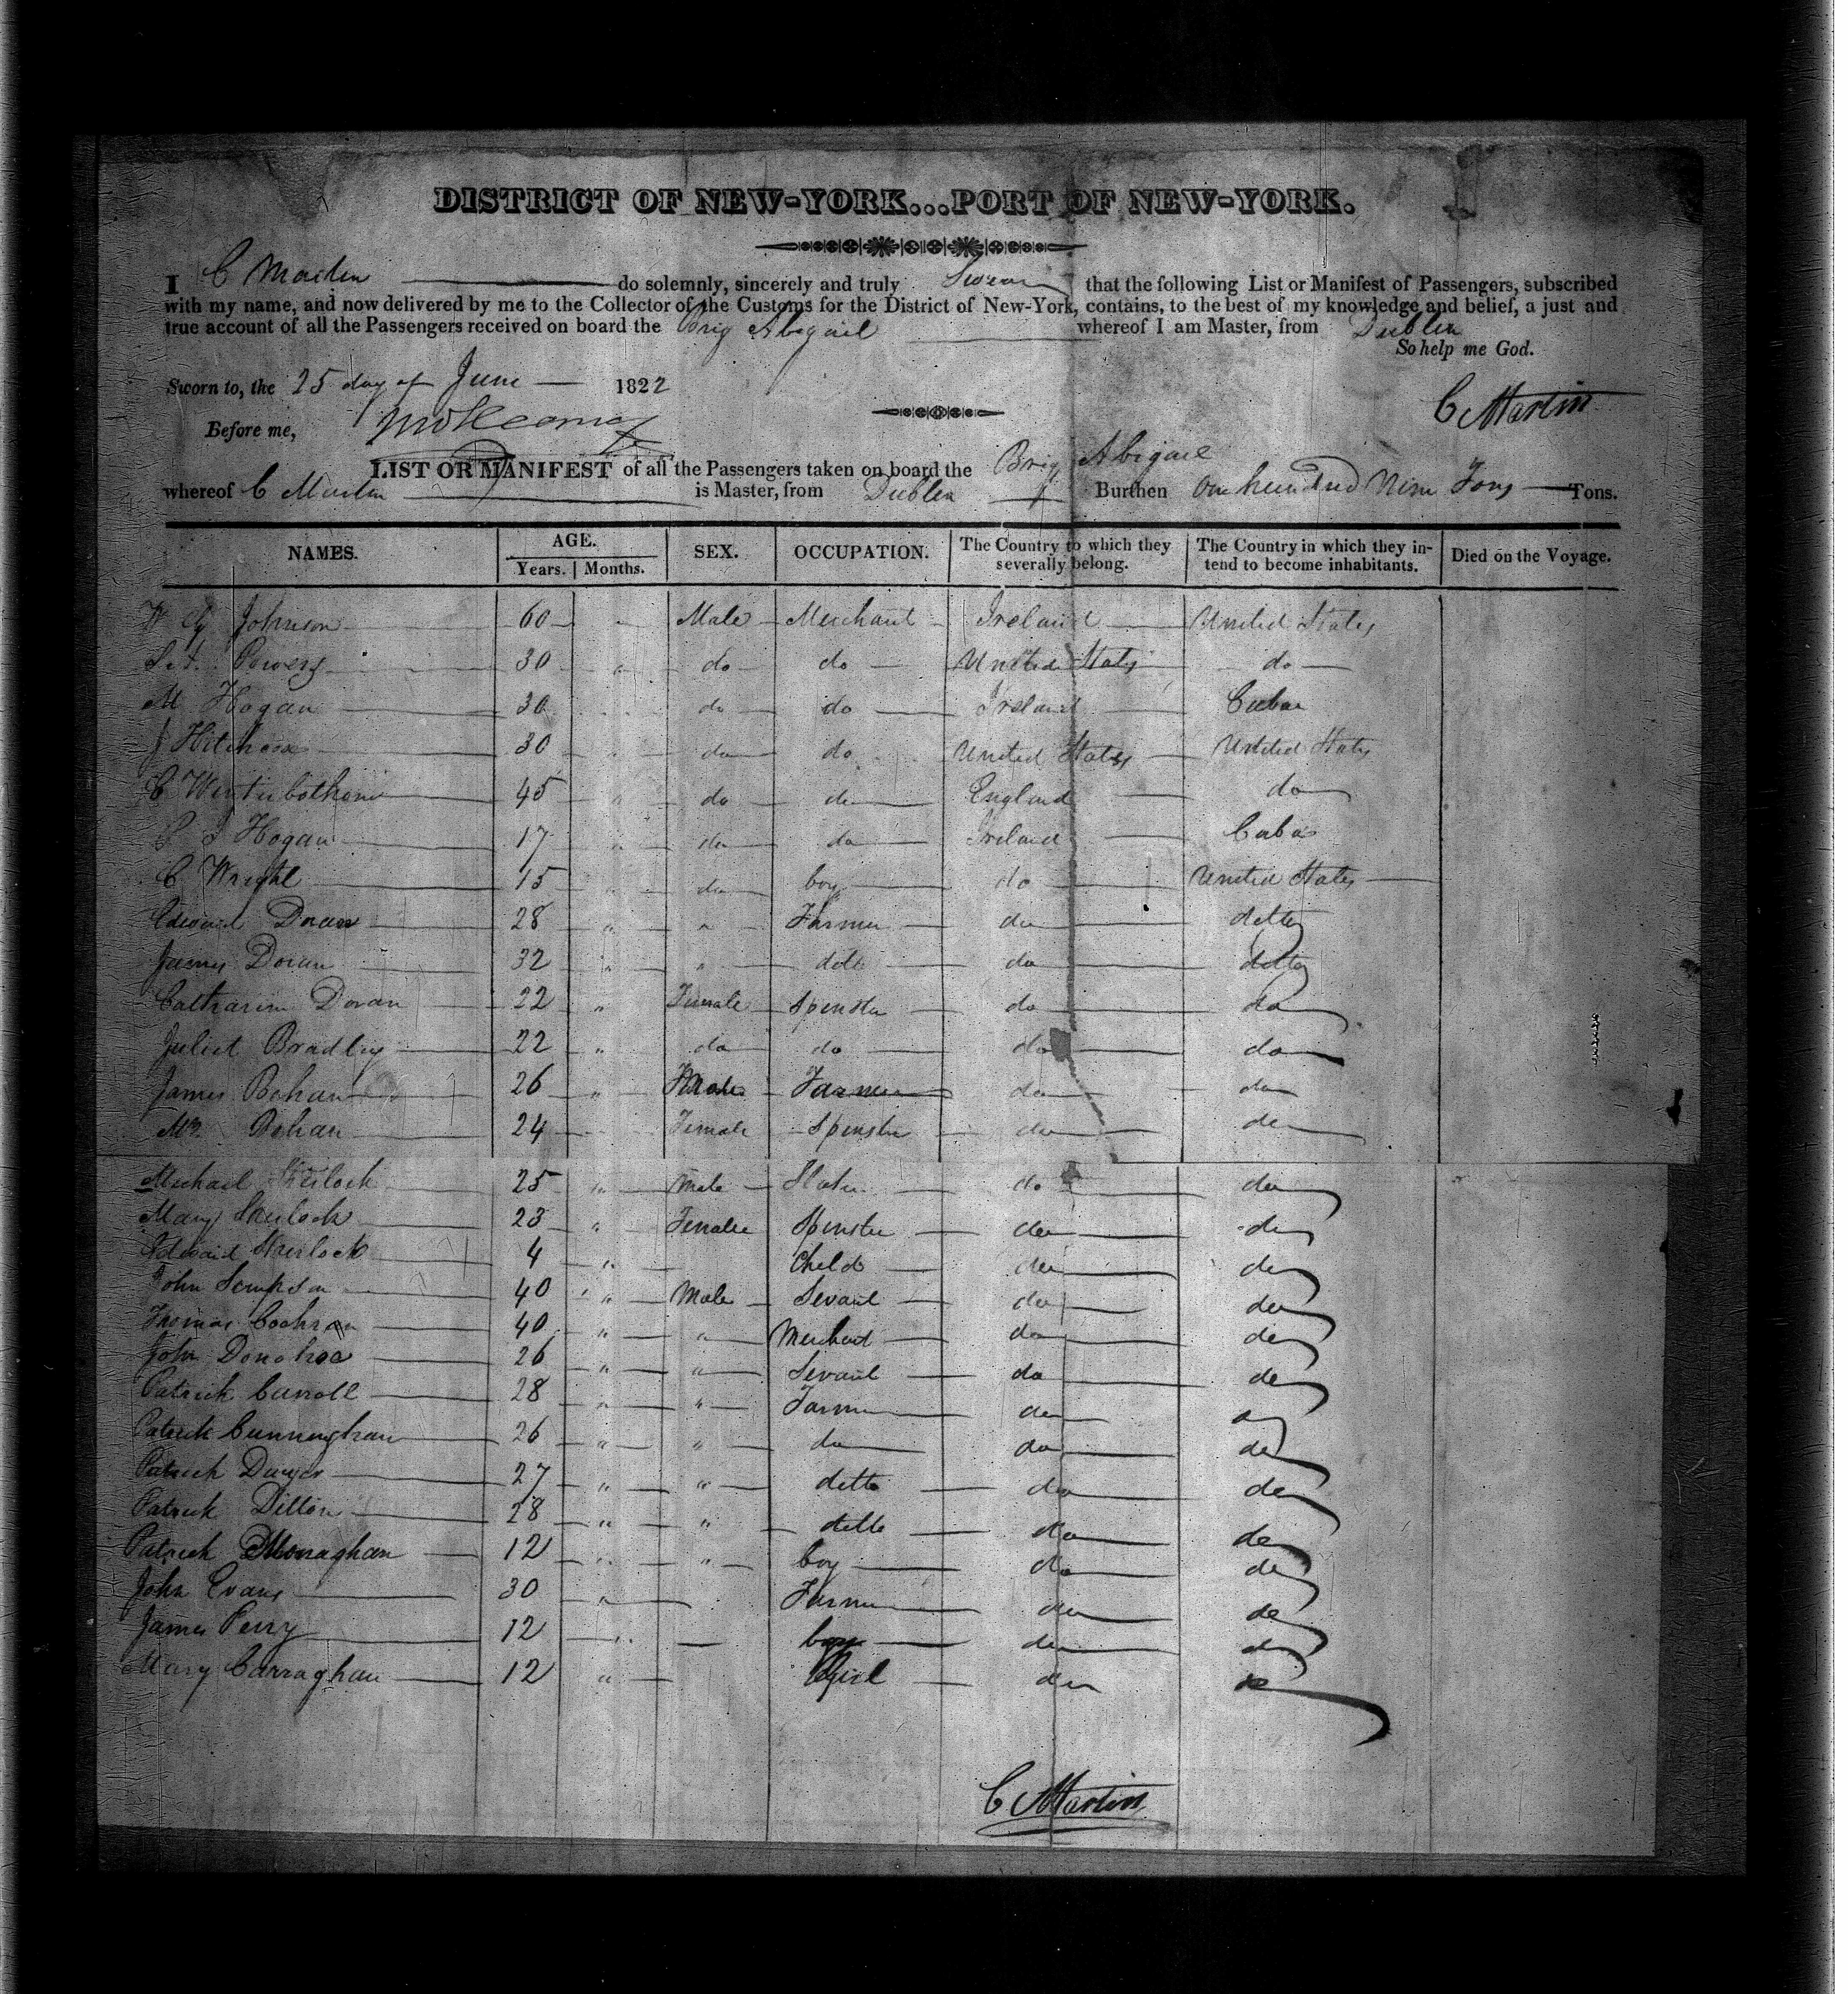 DISTRICT OF NEW-YORK...PORT OF NEW-YORK.
I C Martin do solemnly, sincerely and truly Swear that the following List or Manifest of Passengers, subscribed
with my name, and now delivered by me to the Collector of the Customs for the District of New-York, contains, to the best of my knowledge and belief, a just and
true account of all the Passengers received on board the Brig Abigail whereof I am Master, from Dublin
So help me God.
Sworn to, the 25 day of June 1822
C Martin
Before me,
LIST OR MANIFEST of all the Passengers taken on board the Brig Abigail
whereof C Martin is Master, from Dublin Burthen One hundred Nine Tons Tons.
NAMES. AGE. Years. Months. SEX. OCCUPATION. The Country to which they severally belong. The Country in which they intend to become inhabitants. Died on the Voyage.
Johnson 60 " Male Merchant Ireland United States
Powers 30 " do do United States do
M Hogan 30 " do do Ireland Cuba
J 30 " do do United States United States
C Winterbothom 45 " do do England do
Hogan 17 " do do Ireland Cuba
C Wright 15 " do boy do United States
Edward Doran 28 " " Farmer do ditto
James Doran 32 " " ditto do ditto
Catharine Doran 22 " Female Spinster do do
Juliet Bradley 22 " do do do do
James Bohan 26 " Male Farmer do do
Mrs Bohan 24 Female Spinster do do
Michael Sherlock 25 " Male Slater do do
Mary Sherlock 23 " Female Spinster do do
Edward Sherlock 4 " Child do do
John Simpson 40 " Male Servant do do
Thomas Cochran 40 " " Merchant do do
John Donohoe 26 " " Servant do do
Patrick Carroll 28 " " Farmer do do
Patrick Cunningham 26 " " do do do
Patrick Dwyer 27 " " ditto do do
Patrick Dillon 28 " " ditto do do
Patrick Monaghan 12 " " boy do do
John Evans 30 " Farmer do do
James Perry 12 " boy do do
Mary Carraghan 12 " Girl do do
C Martin